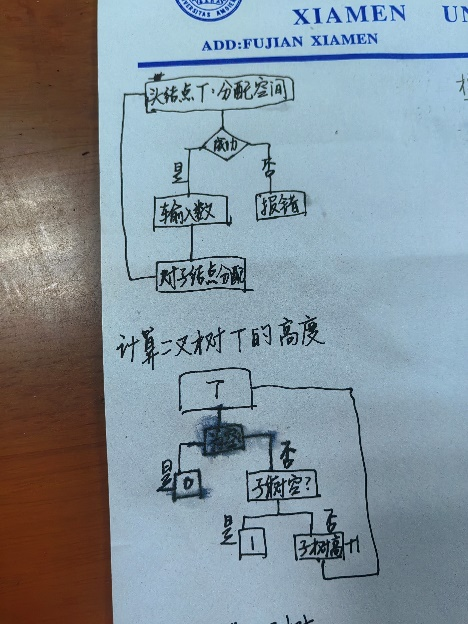 XIAMEN UN
ADD:FUJIAN XIAMEN
头结点T.分配空间
成功
是
否
输入数
报错
对子结点分配
计算二叉树T的高度
T
是
否
0
子树空?
是
否
1
子树高+1